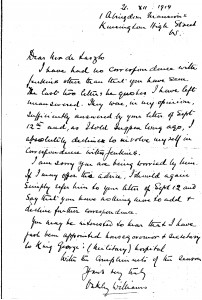 21. XII 1914
1 Abingdon Mansions
Kensington High Street
W.
Dear Mr de Laszlo
I have had no correspondence with
Jenkins other than that you have seen.
The last two letters he quotes I have left
unanswered. They was, in my opinion,
sufficiently answered by your letter of Sept
12th and, as I told Simpson long ago, I
absolutely decline to involve myself in
correspondence with Jenkins.
I am sorry you are being worried by him.
If I may offer the advice, I should again
simply refer him to your letter of Sept 12 and
say that you have nothing more to add &
decline further correspondence.
You may be interested to hear that I have
just been appointed house governor & secretary
to King George's (military) hospital
With the Compliments of the season
Yours very truly
Williams